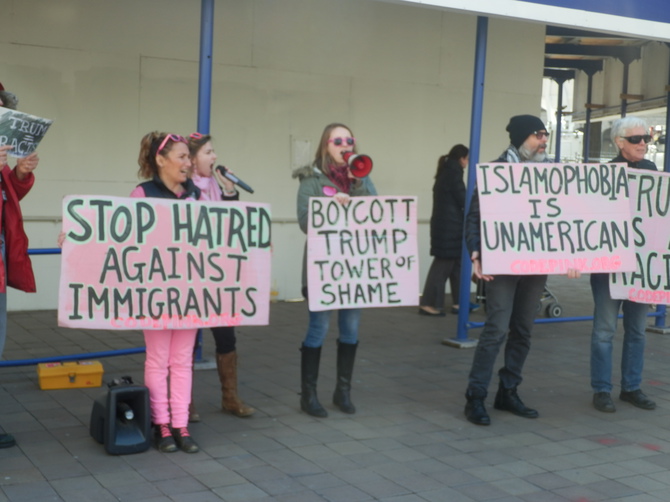 TRUM
=
RACIS
STOP HATRED
AGAINST
IMMIGRANTS
BOYCOTT
TRUMP
TOWER OF
SHAME
ISLAMOPHOBIA
IS
UNAMERICAN
CODEPINK.ORG
RU
S
RACI
CODEP